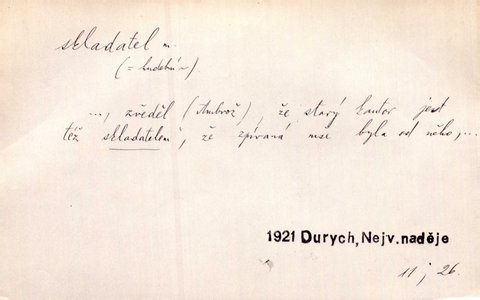 skladatel m
(= hudební ~).
..., zvěděl (Ambrož), že starý kantor jest
též skladatelem, že zpívaná mše byla od něho, ...
1921 Durych, Nejv. naděje
11 j 26.